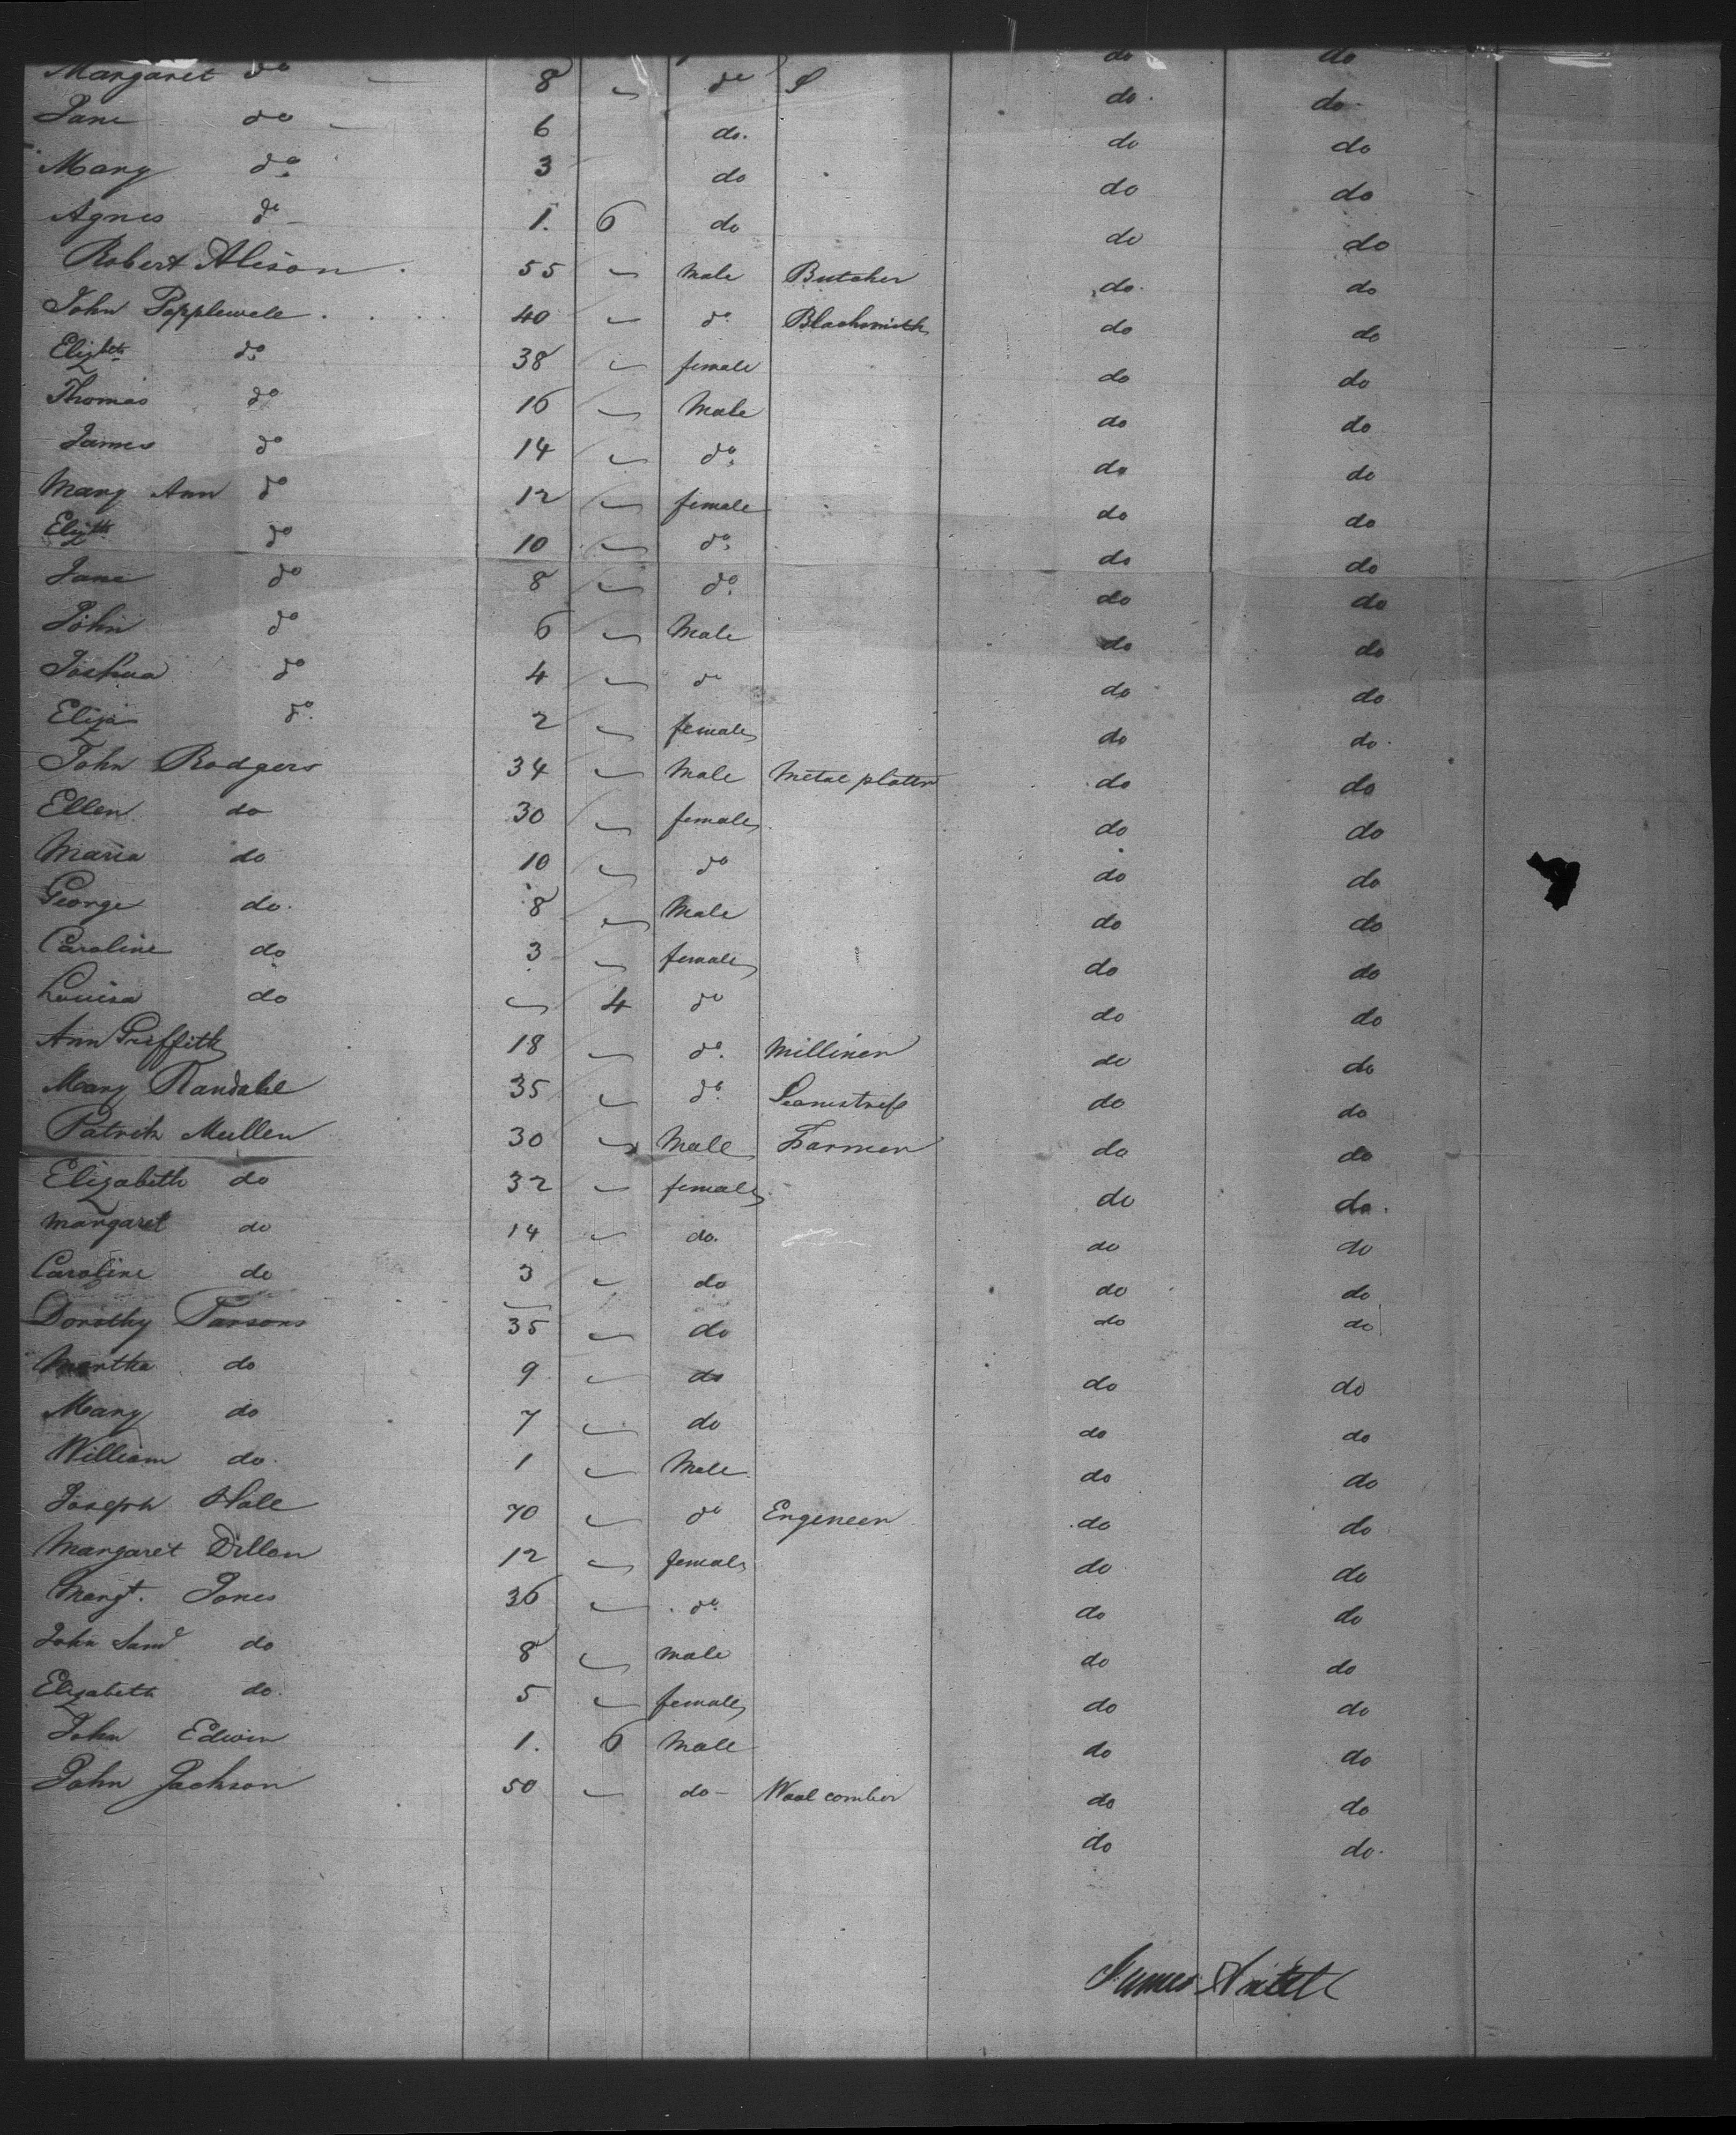 Margaret do 8 do S do do
Jane do 6 do. do do
Mary do 3 do do do
Agnes do 1. 6 do do do
Robert Alison 55 Male Butcher do do
John Popplewell 40 do Blacksmith do do
Elizbth do 38 female do do
Thomas do 16 Male do do
James do 14 do do do
Mary Ann do 12 female do do
Elizth do 10 do do do
Jane do 8 do do do
John do 6 Male do do
Joshua do 4 do do do
Eliza do 2 female do do
John Rodgers 34 Male Metal plater do do
Ellen do 30 female do do
Maria do 10 do do do
George do. 8 Male do do
Caroline do 3 female do do
Louisa do 4 do do do
Ann Griffith 18 do Milliner do do
Mary Randall 35 do Seamstress do do
Patrick Mullen 30 Male Farmer do do
Elizabeth do 32 female do do.
Margaret do 14 do. do do
Caroline do 3 do do do
Dorothy Parsons 35 do do do
Martha do 9 do do do
Mary do 7 do do do
William do. 1 Male do do
Joseph Hale 70 do Engineer do do
Margaret Dillon 12 female do do
Margt. Jones 36 do do do
John Saml do 8 male do do
Elizabeth do. 5 female do do
John Edwin 1. 6 Male do do
John Jackson 50 do Wool comber do do
do do.
James